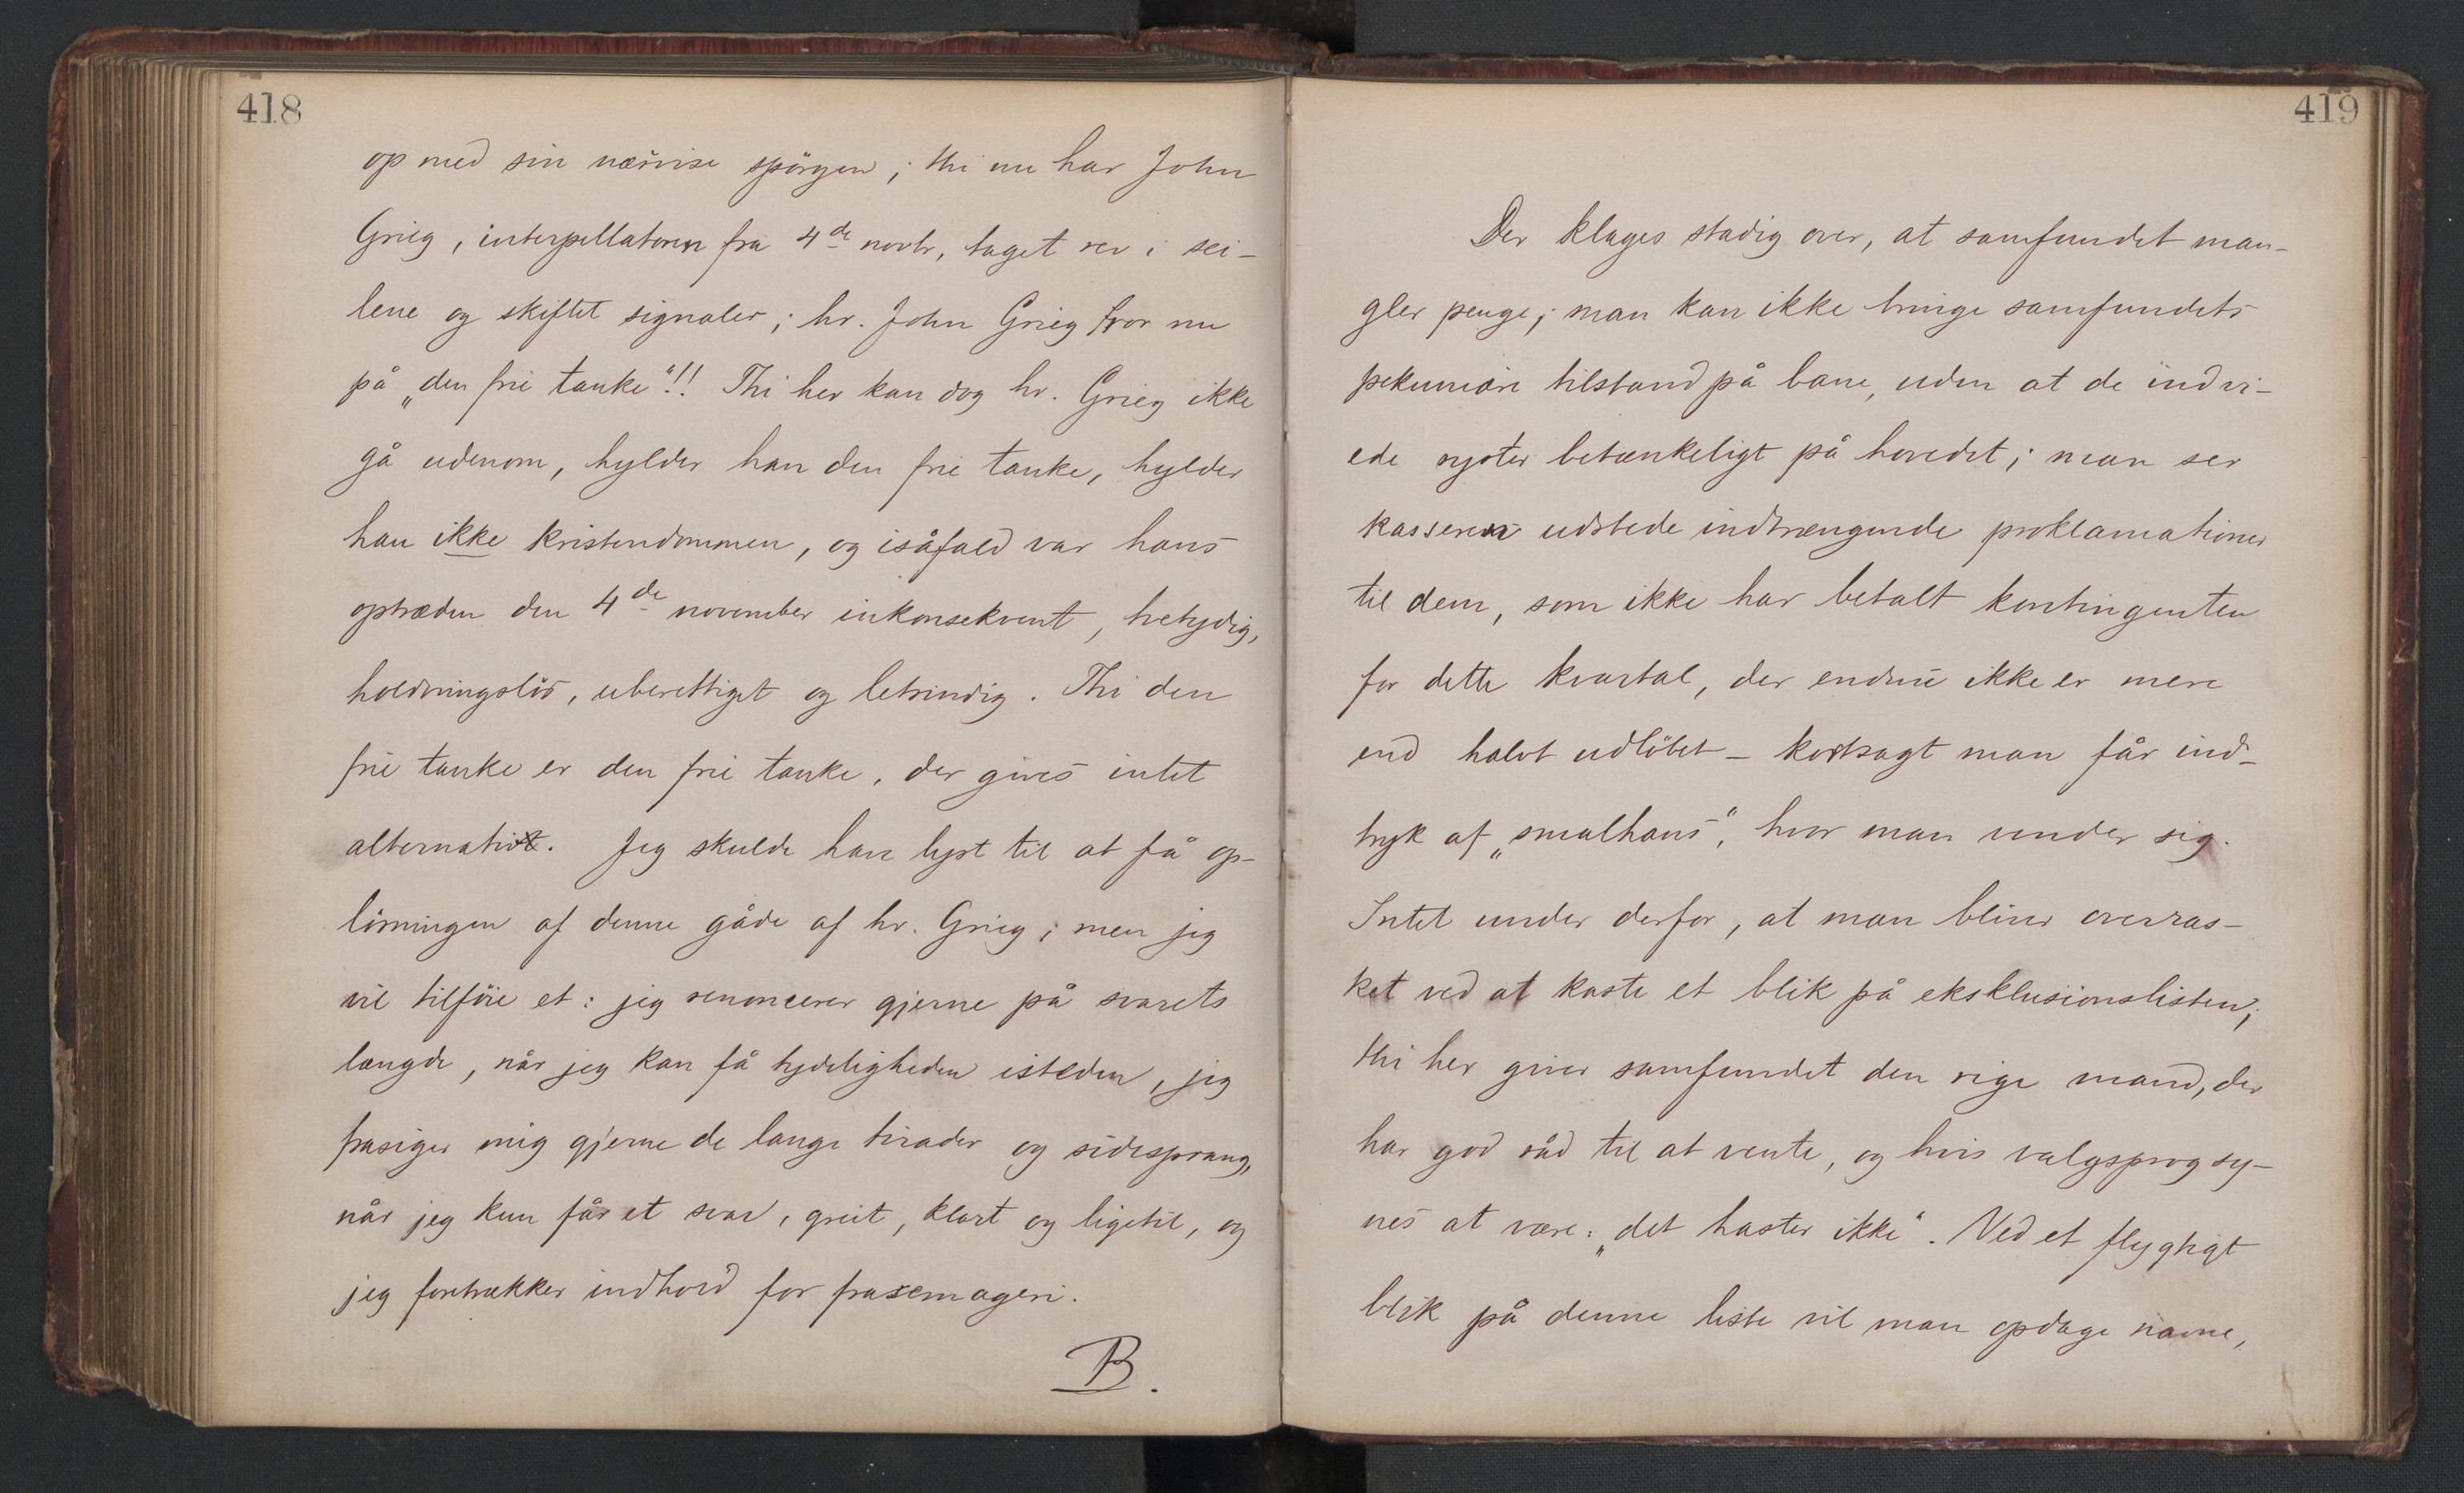 418
op med sin næsvise spörgen; thi nu har John
Grieg, interpellatoren fra 4de novbr, taget rev i sei-
lene og skiftet signaler; hr. John Grieg tror nu
på „den frie tanke"!! Thi her kan dog hr. Grieg ikke
gå udenom, hylder han den frie tanke, hylder
han ikke kristendommen, og isåfald var hans
optræden den 4de november inkonsekvent, tvetydig,
holdningslös, uberettiget og letsindig. Thi den
frie tanke er den frie tanke, der gives intet
alternativ. Jeg skulde have lyst til at få op-
lösningen af denne gåde af hr. Grieg; men jeg
vil tilföie et: jeg renoncerer gjerne på svarets
længde, når jeg kan få tydeligheden isteden, jeg
frasiger mig gjerne de lange tirader og sidesprang,
når jeg kun får et svar, greit, klart og ligetil, og
jeg foretrækker indhold for frasemageri.
B.
419
Der klages stadig over, at samfundet man-
gler penge; man kan ikke bringe samfundets
pekuniære tilstand på bane, uden at de indvi-
ede ryster betænkeligt på hovedet; man ser
kasseren udstede indtrængende proklamationer
til dem, som ikke har betalt kontingenten
for dette kvartal, der endnu ikke er mere
end halvt udlöbet – kortsagt man får ind-
tryk af „smalhans", hvor man vender sig.
Intet under derfor, at man bliver overras-
ket ved at kaste et blik på eksklusionslisten;
thi her giver samfundet den rige mand, der
har god råd til at vente, og hvis valgsprog sy-
nes at være: „det haster ikke". Ved et flygtigt
blik på denne liste vil man opdage navne,